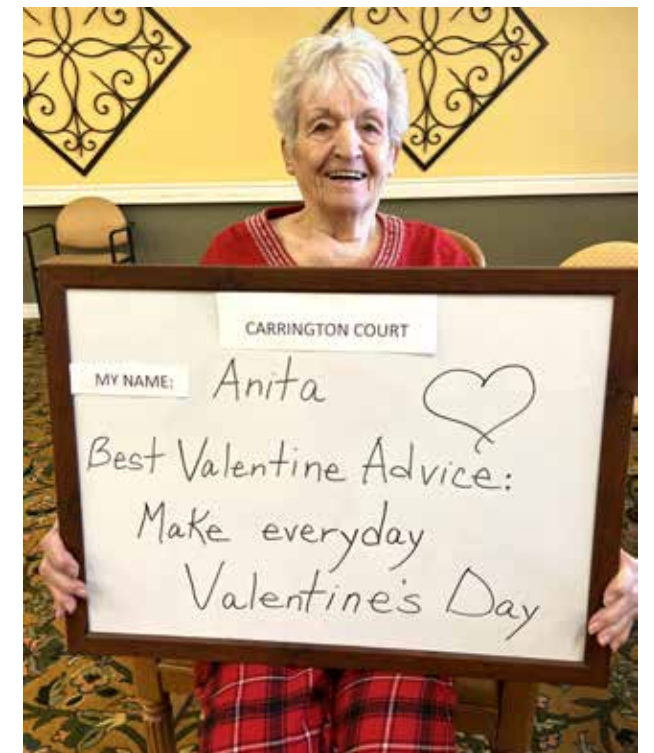 CARRINGTON COURT
MY NAME: Anita
Best Valentine Advice:
Make everyday
Valentine's Day